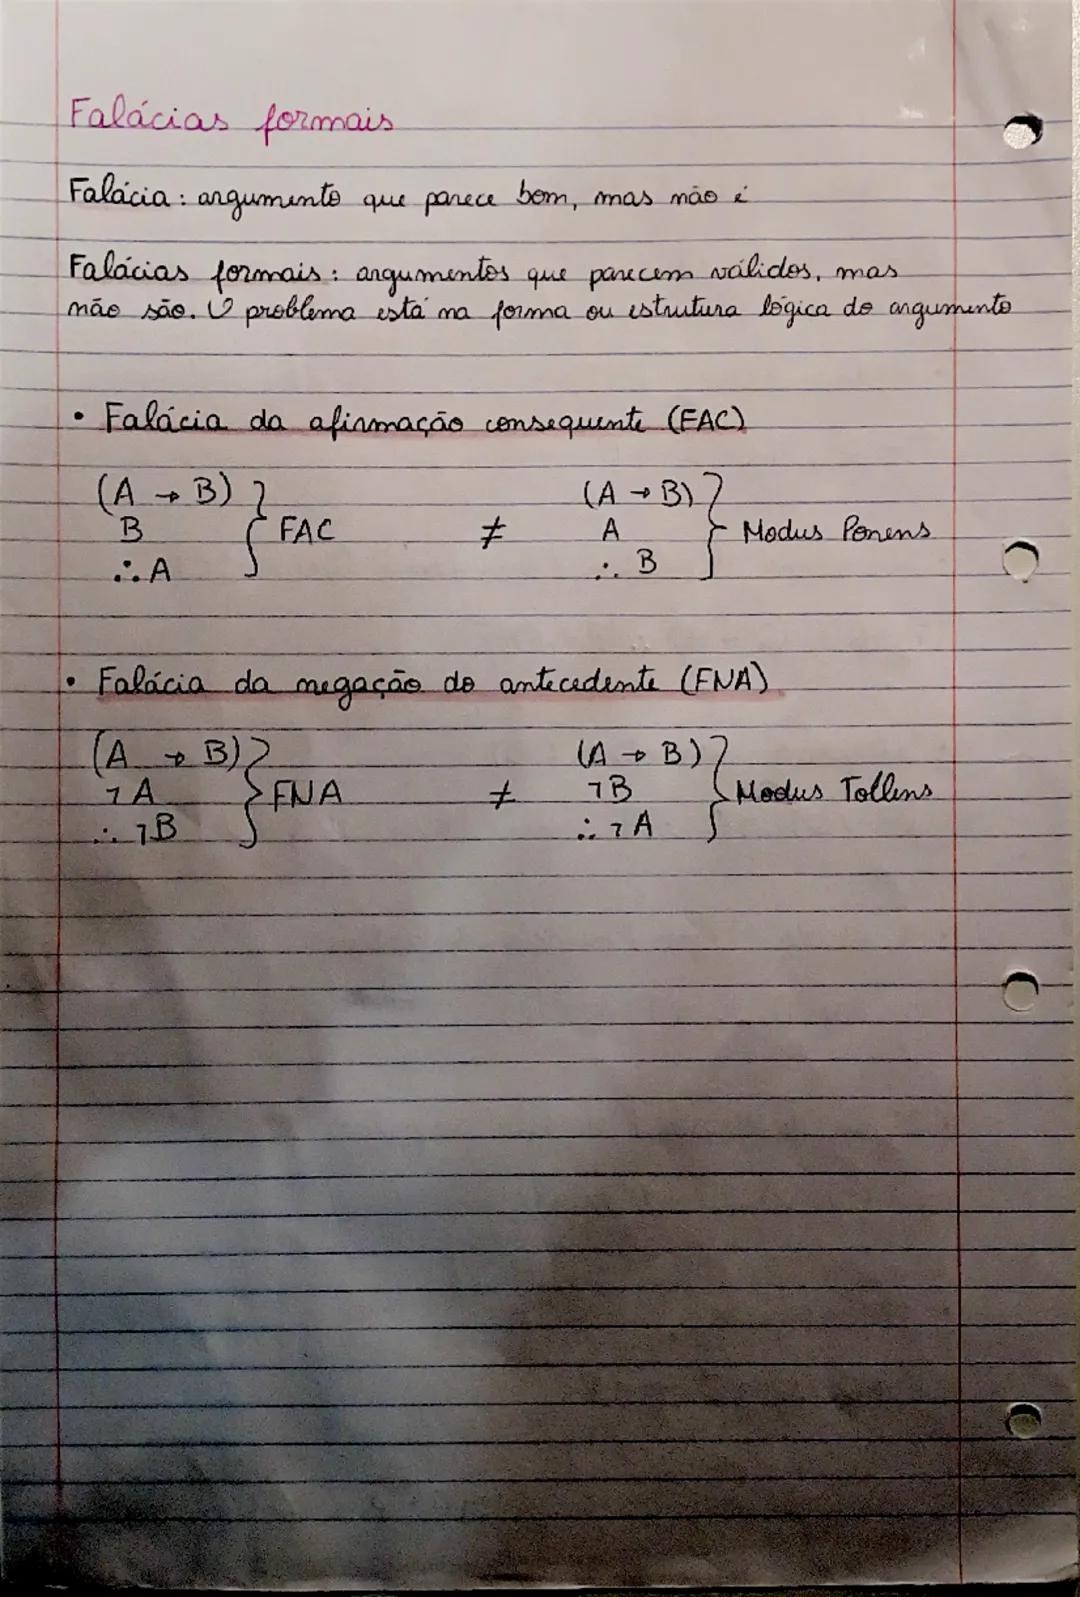 Falácias formais
Falácia: argumento que parece bom, mas não é
Falácias formais: argumentos que parecem válidos, mas
não são. O problema está na forma ou estrutura lógica do argumento
• Falácia da afirmação consequente (FAC)
(A → B) (A → B)
B } FAC ≠ A } Modus Ponens
∴ A ∴ B
• Falácia da negação do antecedente (FNA)
(A → B) (A → B)
¬A } FNA ≠ ¬B } Modus Tollens
∴ ¬B ∴ ¬A